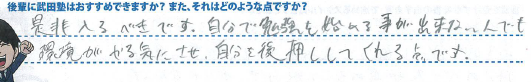 後輩に武田塾はおすすめできますか? また、それはどのような点ですか?
是非入るべきです。自分で勉強を始める事が出来ない人でも
環境がやる気にさせ、自分を後押ししてくれる点です。